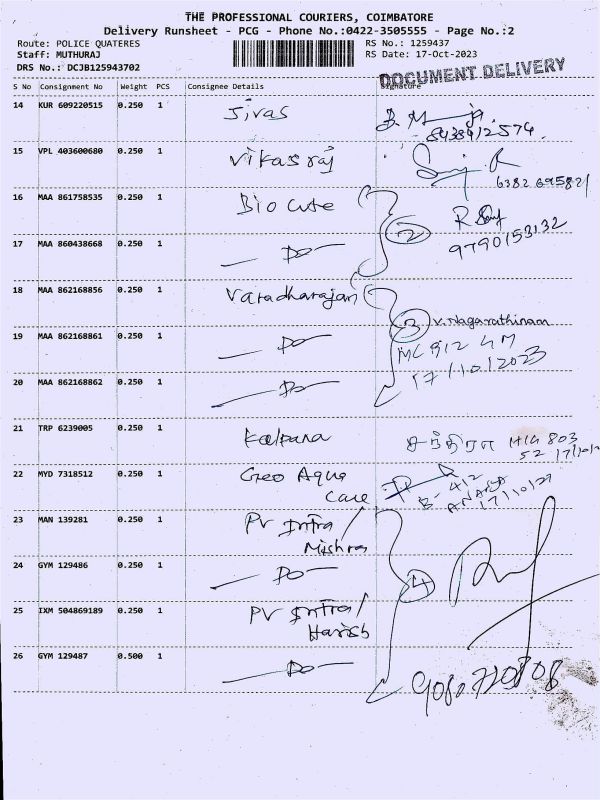 THE PROFESSIONAL COURIERS, COIMBATORE
Delivery Runsheet - PCG - Phone No.:0422-3505555 - Page No.:2
Route: POLICE QUATERES RS No.: 1259437
Staff: MUTHURAJ RS Date: 17-Oct-2023
DRS No.: DCJB125943702
DOCUMENT DELIVERY
S No Consignment No Weight PCS Consignee Details Signature
14 KUR 609220515 0.250 1 Jivas
8438912574
15 VPL 403600680 0.250 1 Vikas raj
6382695821
16 MAA 861758535 0.250 1 Bio cute
2
17 MAA 860438668 0.250 1 — Do — 9790153132
18 MAA 862168856 0.250 1 Varadharajan
3 V. Nagarathinam
19 MAA 862168861 0.250 1 — Do — MC 912 4M
17/10/2023
20 MAA 862168862 0.250 1 — Do —
21 TRP 6239005 0.250 1 Kalpana சந்திரா HIG 803
52 17/10/2
22 MYD 7318512 0.250 1 Geo Aqua Care B-412
17/10/23
23 MAN 139281 0.250 1 PV Intra/
Mishra
24 GYM 129486 0.250 1 — Do — 4
25 IXM 504869189 0.250 1 PV Intra/
Harish
26 GYM 129487 0.500 1 — Do —
9080770808